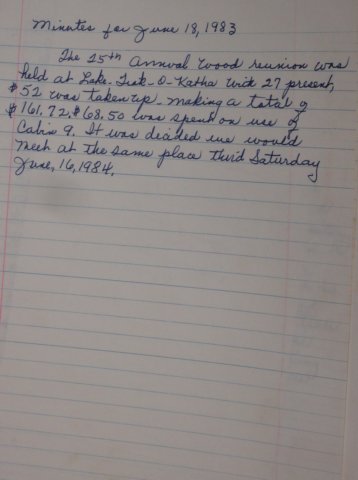 Minutes for June 18, 1983
The 25th Annual Wood reunion was
held at Lake-Tiak-O-Katha with 27 present,
$52 was taken up - making a total of
$161.72. $68.50 was spent on use of
Cabin 9. It was decided we would
meet at the same place third Saturday
June, 16, 1984.